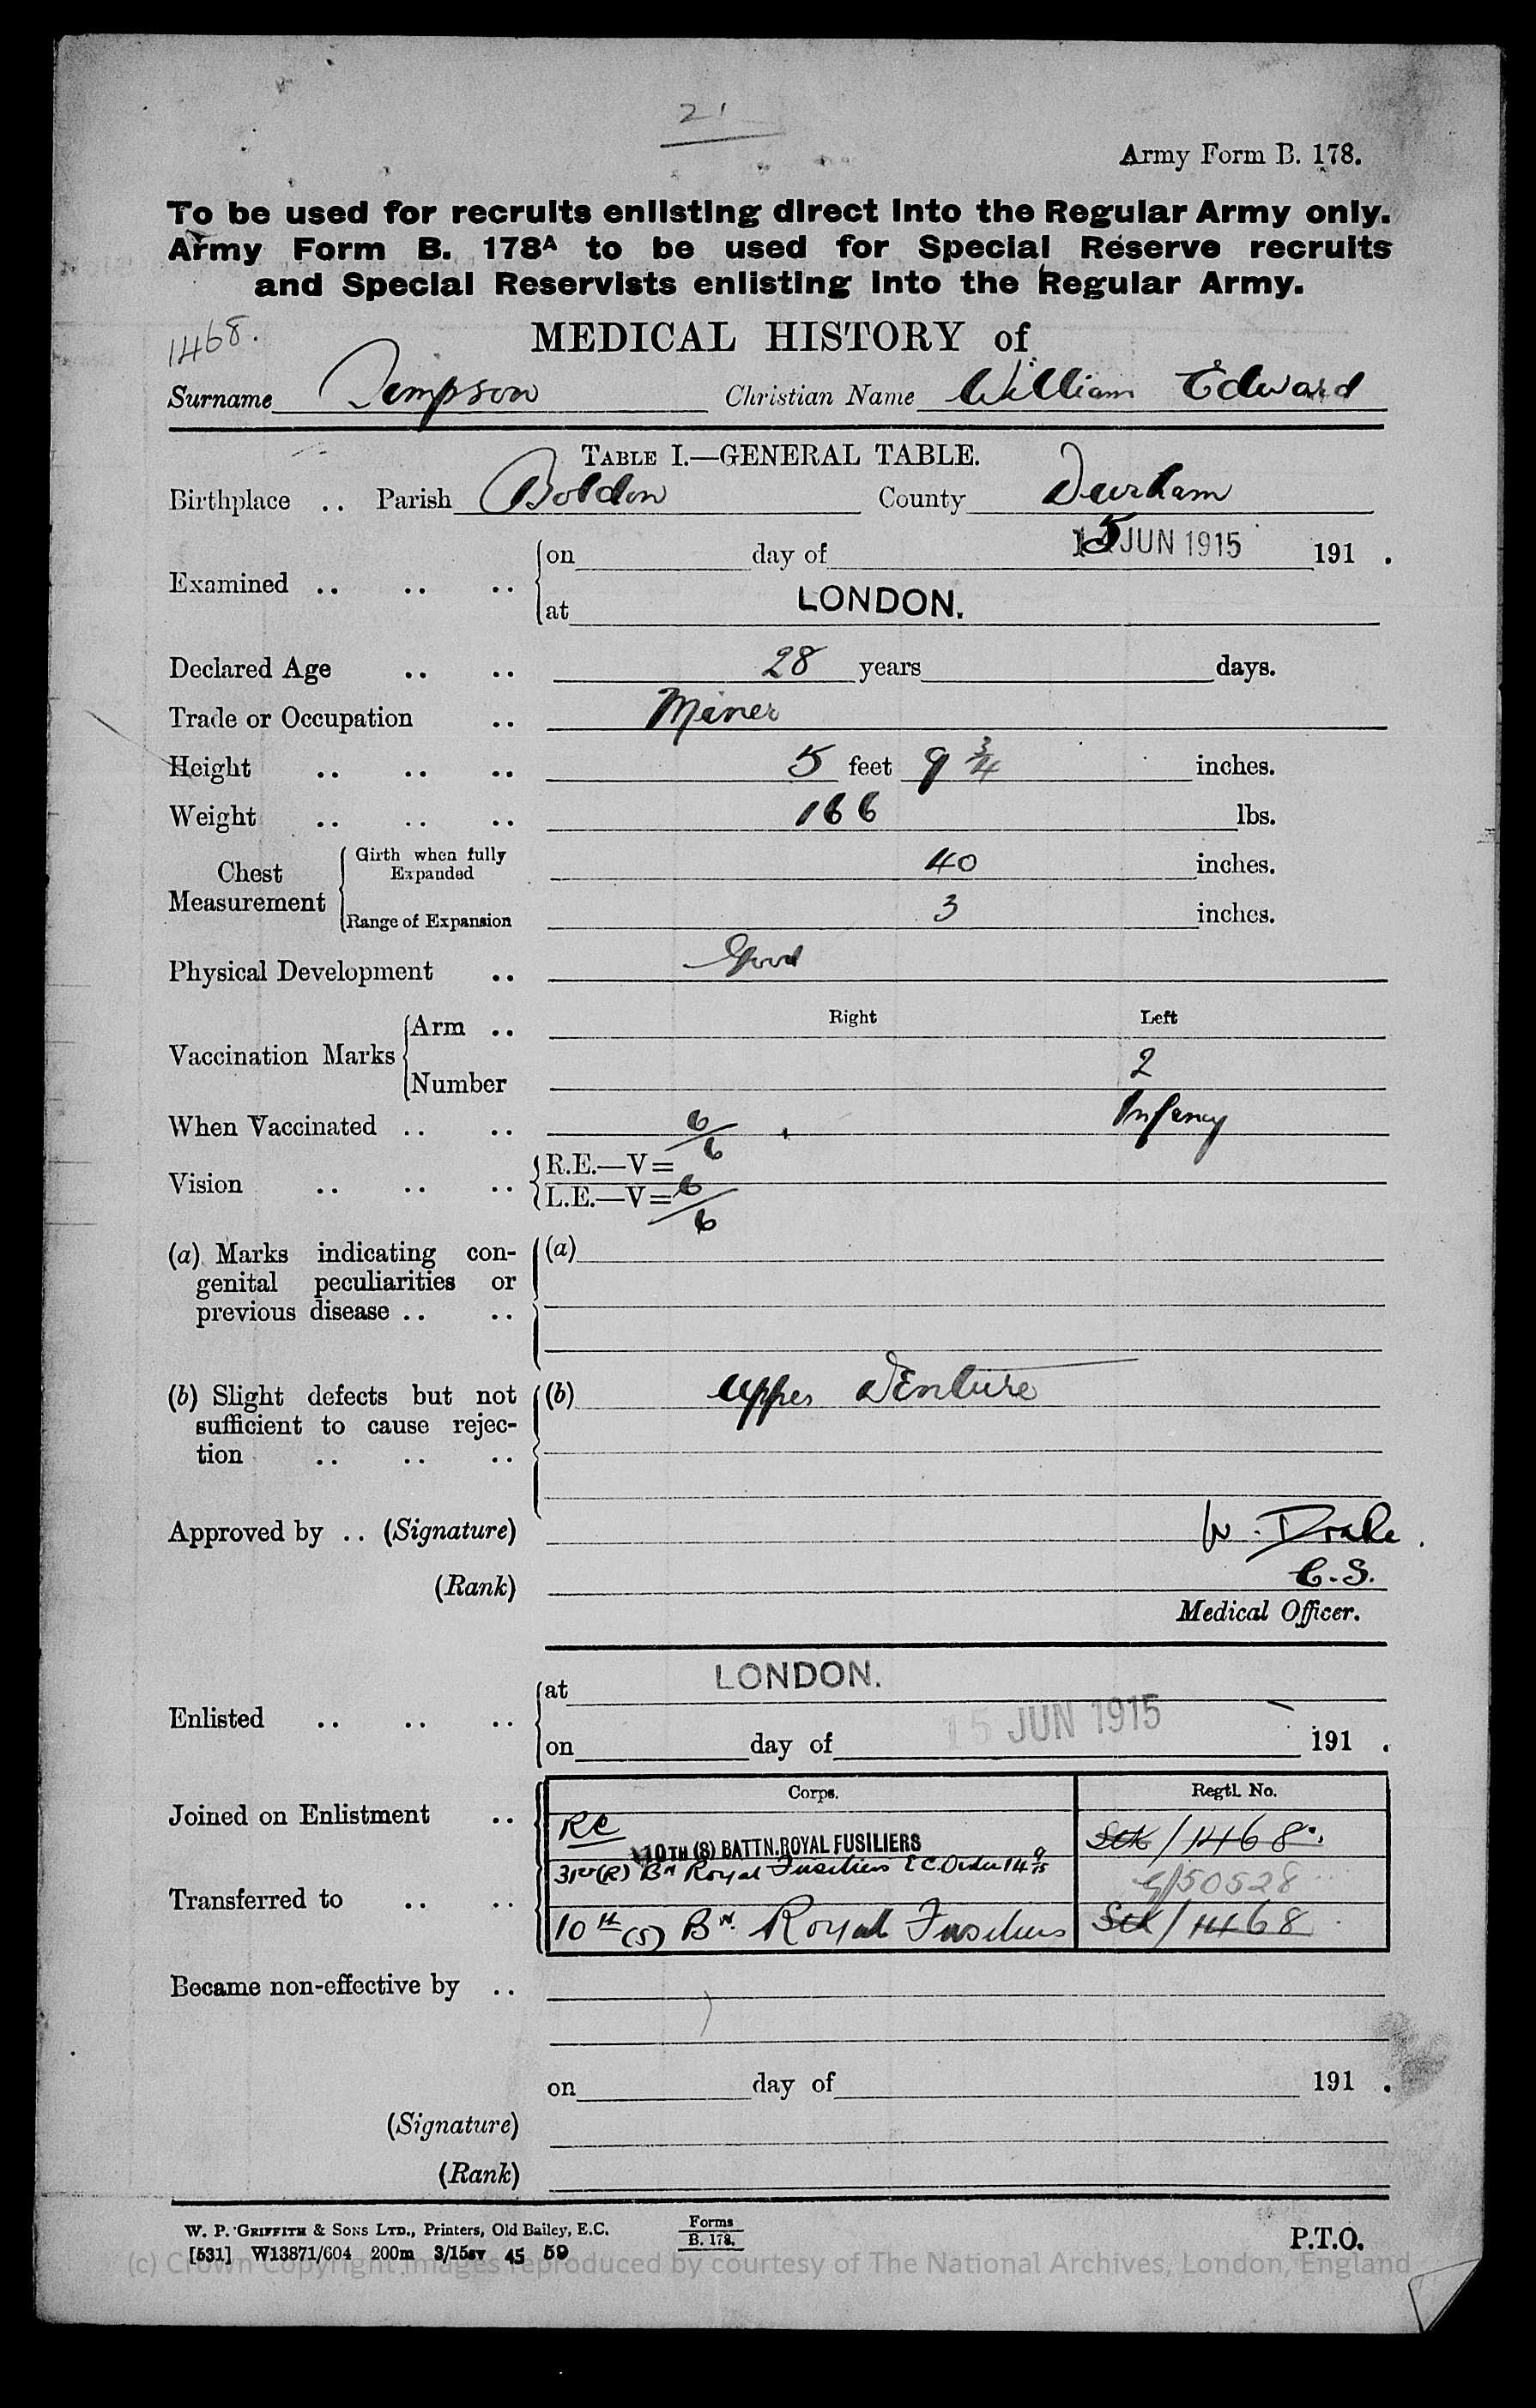 21
Army Form B. 178.
To be used for recruits enlisting direct into the Regular Army only.
Army Form B. 178A to be used for Special Reserve recruits
and Special Reservists enlisting into the Regular Army.
1468.
MEDICAL HISTORY of
Surname Simpson Christian Name William Edward
TABLE I.—GENERAL TABLE.
Birthplace .. Parish Boldon County Durham
Examined .. .. .. on day of 15 JUN 1915 191 .
at LONDON.
Declared Age .. .. 28 years days.
Trade or Occupation .. Miner
Height .. .. .. 5 feet 9 3/4 inches.
Weight .. .. .. 166 lbs.
Chest Measurement Girth when fully Expanded 40 inches.
Range of Expansion 3 inches.
Physical Development .. Good
Vaccination Marks Arm .. Right Left
Number 2
When Vaccinated .. .. Infancy
Vision .. .. .. R.E.—V= 6/6
L.E.—V= 6/6
(a) Marks indicating con- (a)
genital peculiarities or
previous disease .. ..
(b) Slight defects but not (b) Upper Denture
sufficient to cause rejec-
tion .. .. ..
Approved by .. (Signature) W. Drake.
(Rank) C.S.
Medical Officer.
Enlisted .. .. .. at LONDON.
on day of 15 JUN 1915 191 .
Corps. Regtl. No.
Joined on Enlistment .. 10TH (S) BATTN. ROYAL FUSILIERS Stk/1468.
31st (R) Bn Royal Fusiliers E C. Order 14 9/15 G/50528
Transferred to .. .. 10th (S) Bn. Royal Fusiliers Stk/1468
Became non-effective by ..
on day of 191 .
(Signature)
(Rank)
W. P. GRIFFITH & SONS LTD., Printers, Old Bailey, E.C. Forms B. 178. P.T.O.
[531] W13871/604 200m 3/15sv 45 59
(c) Crown Copyright Images reproduced by courtesy of The National Archives, London, England